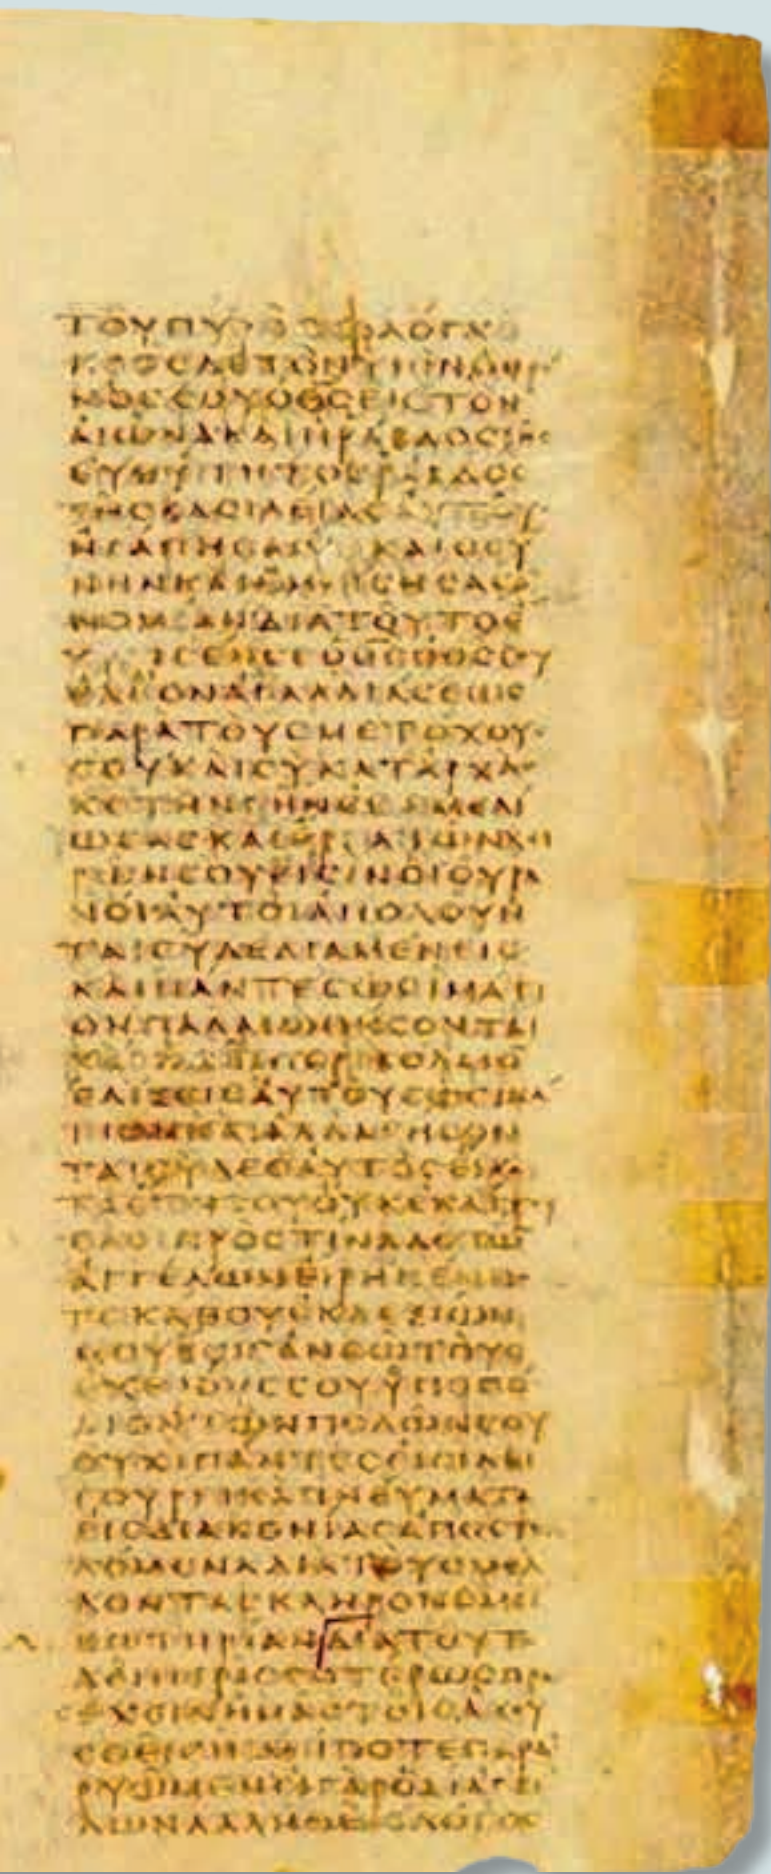 ΤΟΥ ΠΥΡΟΣ ΦΛΟΓΑ
ΠΡΟΣ ΔΕ ΤΟΝ ΥΙΟΝ Ο ΘΡΟ
ΝΟΣ ΣΟΥ Ο ΘΣ ΕΙΣ ΤΟΝ
ΑΙΩΝΑ ΚΑΙ Η ΡΑΒΔΟΣ ΤΗΣ
ΕΥΘΥΤΗΤΟΣ ΡΑΒΔΟΣ
ΤΗΣ ΒΑΣΙΛΕΙΑΣ ΑΥΤΟΥ
ΗΓΑΠΗΣΑΣ ΔΙΚΑΙΟΣΥ
ΝΗΝ ΚΑΙ ΕΜΙΣΗΣΑΣ Α
ΝΟΜΙΑΝ ΔΙΑ ΤΟΥΤΟ Ε
ΧΡΙΣΕΝ ΣΕ Ο ΘΣ Ο ΘΣ ΣΟΥ
ΕΛΑΙΟΝ ΑΓΑΛΛΙΑΣΕΩΣ
ΠΑΡΑ ΤΟΥΣ ΜΕΤΟΧΟΥΣ
ΣΟΥ ΚΑΙ ΣΥ ΚΑΤ ΑΡΧΑΣ
ΚΕ ΤΗΝ ΓΗΝ ΕΘΕΜΕΛΙ
ΩΣΑΣ ΚΑΙ ΕΡΓΑ ΤΩΝ ΧΕΙ
ΡΩΝ ΣΟΥ ΕΙΣΙΝ ΟΙ ΟΥΡΑ
ΝΟΙ ΑΥΤΟΙ ΑΠΟΛΟΥΝ
ΤΑΙ ΣΥ ΔΕ ΔΙΑΜΕΝΕΙΣ
ΚΑΙ ΠΑΝΤΕΣ ΩΣ ΙΜΑΤΙ
ΟΝ ΠΑΛΑΙΩΘΗΣΟΝΤΑΙ
ΚΑΙ ΩΣΕΙ ΠΕΡΙΒΟΛΑΙΟΝ
ΕΛΙΞΕΙΣ ΑΥΤΟΥΣ ΩΣ ΙΜΑ
ΤΙΟΝ ΚΑΙ ΑΛΛΑΓΗΣΟΝ
ΤΑΙ ΣΥ ΔΕ Ο ΑΥΤΟΣ ΕΙ ΚΑΙ
ΤΑ ΕΤΗ ΣΟΥ ΟΥΚ
ΠΡΟΣ ΤΙΝΑ ΔΕ ΤΩΝ
ΑΓΓΕΛΩΝ ΕΙΡΗΚΕΝ ΠΟ
ΤΕ ΚΑΘΟΥ ΕΚ ΔΕΞΙΩΝ
ΜΟΥ ΕΩΣ ΑΝ ΘΩ ΤΟΥΣ
ΕΧΘΡΟΥΣ ΣΟΥ ΥΠΟΠΟ
ΔΙΟΝ ΤΩΝ ΠΟΔΩΝ ΣΟΥ
ΟΥΧΙ ΠΑΝΤΕΣ ΕΙΣΙ ΛΕΙ
ΤΟΥΡΓΙΚΑ ΠΝΕΥΜΑΤΑ
ΕΙΣ ΔΙΑΚΟΝΙΑΣ ΑΠΟΣΤΕΛ
ΛΟΜΕΝΑ ΔΙΑ ΤΟΥΣ ΜΕΛ
ΛΟΝΤΑΣ ΚΛΗΡΟΝΟΜΕΙ
ΣΩΤΗΡΙΑΝ ΔΙΑ ΤΟΥΤΟ
ΔΕΙ ΠΕΡΙΣΣΟΤΕΡΩΣ ΠΡΟ
ΣΕΧΕΙΝ ΗΜΑΣ ΤΟΙΣ ΑΚΟΥ
ΣΘΕΙΣΙΝ ΜΗΠΟΤΕ ΠΑΡΑ
ΡΥΩΜΕΝ ΕΙ ΓΑΡ Ο ΔΙ ΑΓΓΕ
ΛΩΝ ΛΑΛΗΘΕΙΣ ΛΟΓΟΣ